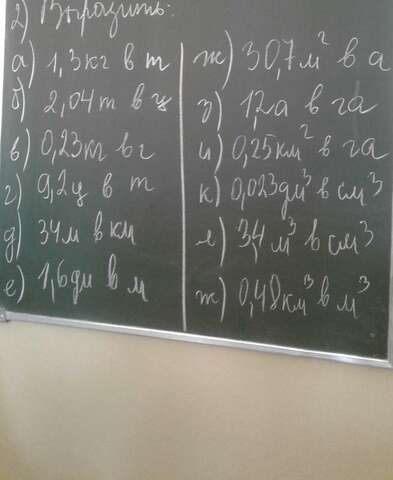 2) Выразить:
а) 1,3кг в т
б) 2,04т в ц
в) 0,23кг в г
г) 0,2ц в т
д) 34м в км
е) 1,6дм в м
ж) 30,7м² в а
з) 1,2а в га
и) 0,25км² в га
к) 0,023дм³ в см³
л) 3,4м³ в см³
т) 0,48км³ в м³